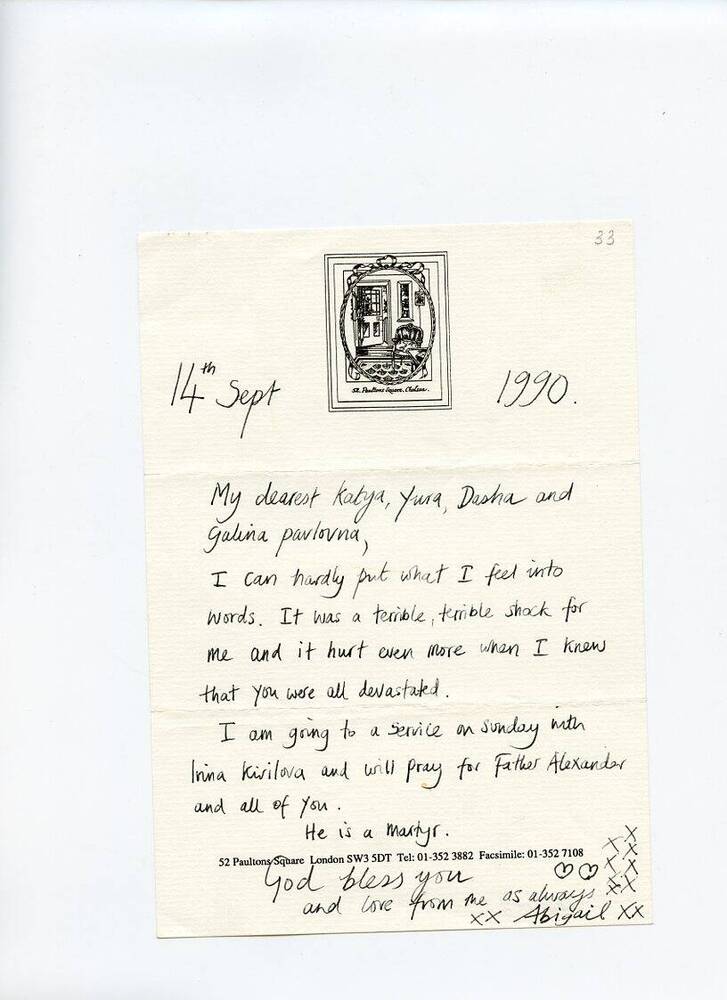 33
52. Paultons Square. Chelsea.
14th Sept 1990.
My dearest Katya, Yura, Dasha and
Galina Pavlovna,
I can hardly put what I feel into
words. It was a terrible, terrible shock for
me and it hurt even more when I knew
that you were all devastated.
I am going to a service on Sunday with
Irina Kirilova and will pray for Father Alexander
and all of you.
He is a martyr.
52 Paultons Square London SW3 5DT Tel: 01-352 3882 Facsimile: 01-352 7108
God bless you
and love from me as always
xx Abigail xx